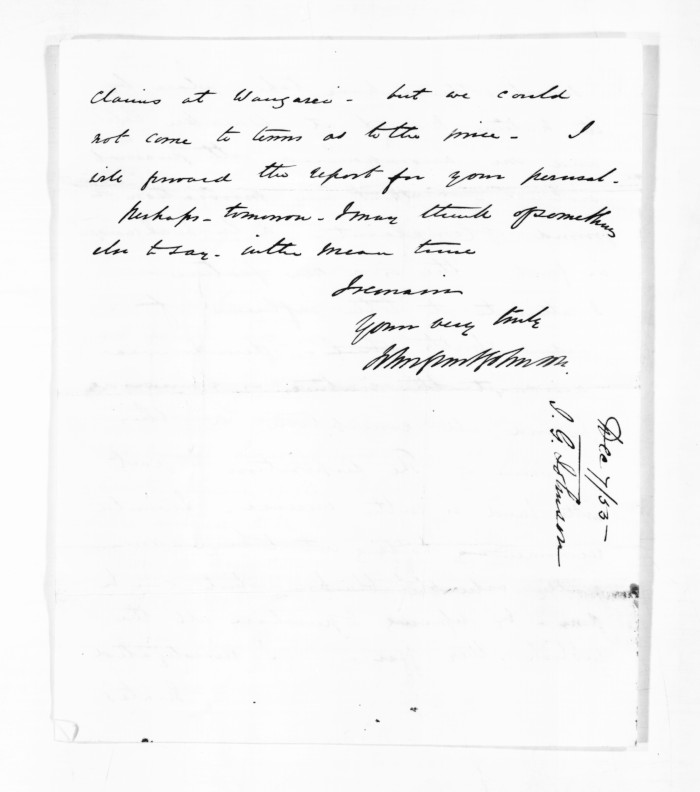 claims at Wangarei - but we could
not come to terms as to the price - I
will forward the report for your perusal.
Perhaps - tomorrow - I may think of something
else to say - in the mean time
I remain
Yours very truly
John Johnson
Dec 7/55 -
J. G. Johnson